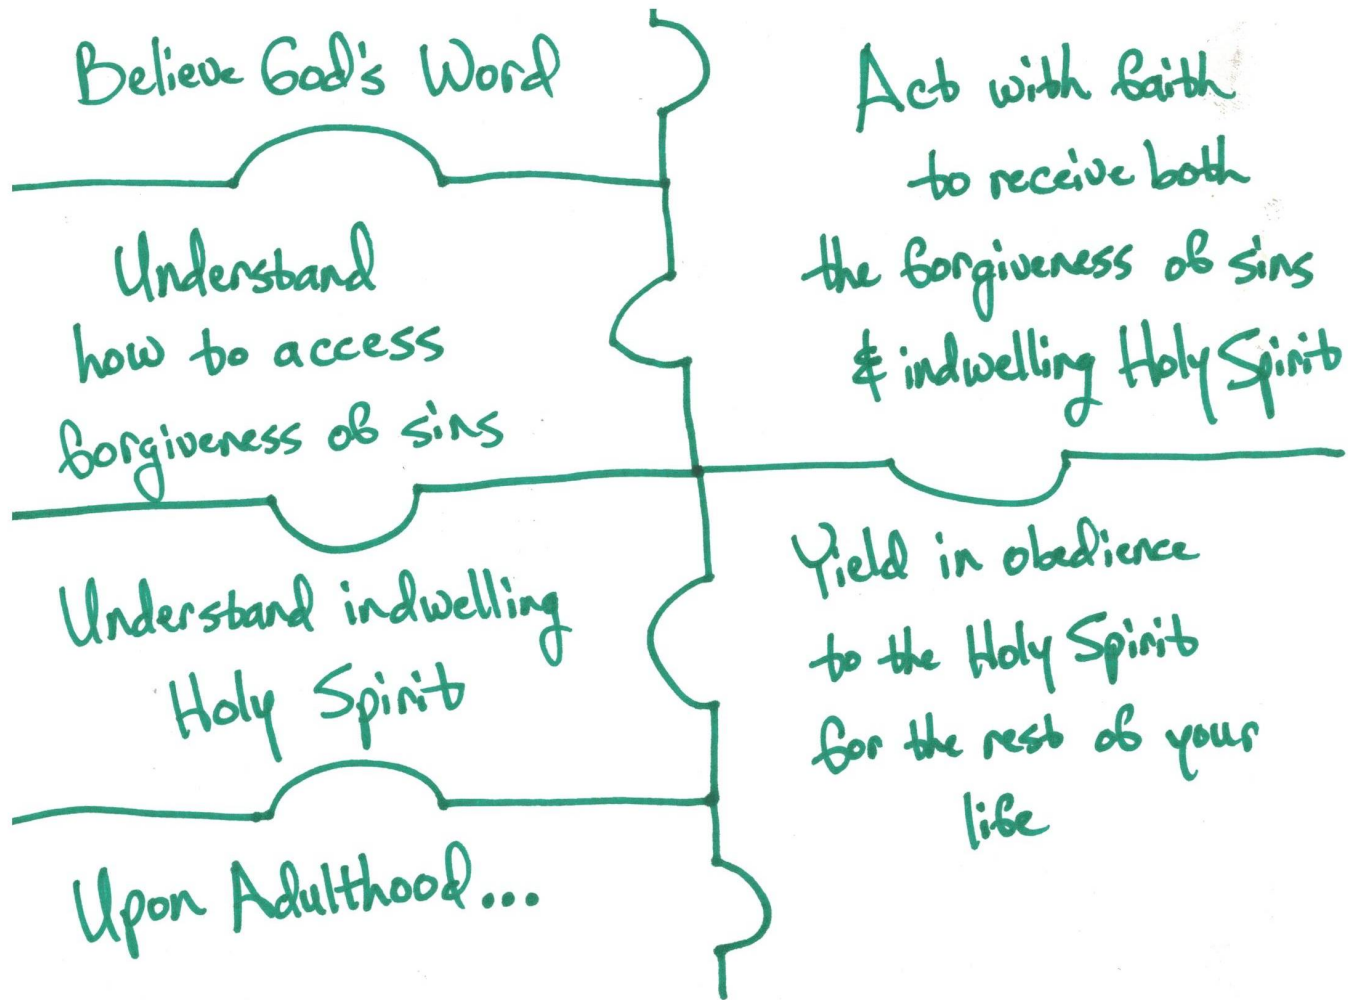 Believe God's Word
Understand
how to access
forgiveness of sins
Understand indwelling
Holy Spirit
Upon Adulthood...
Act with faith
to receive both
the forgiveness of sins
& indwelling Holy Spirit
Yield in obedience
to the Holy Spirit
for the rest of your
life